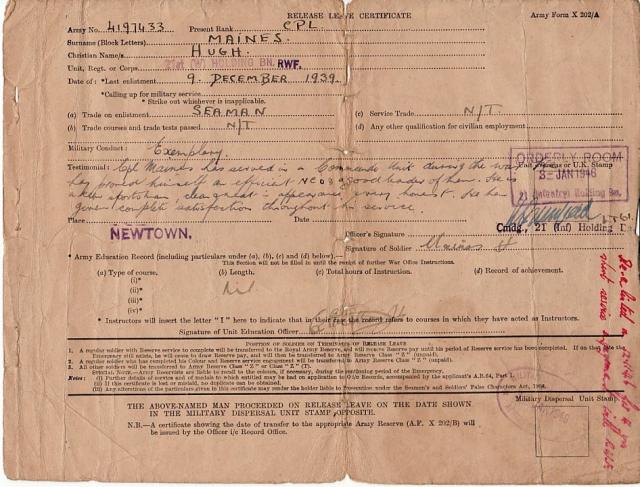 RELEASE LEAVE CERTIFICATE Army Form X 202/A
Army No. 4197433 Present Rank CPL
Surname (Block Letters) MAINES.
Christian Name/s HUGH.
Unit, Regt. or Corps HOLDING BN. RWF.
Date of : *Last enlistment 9. DECEMBER 1939.
*Calling up for military service
* Strike out whichever is inapplicable.
(a) Trade on enlistment SEAMAN (c) Service Trade N/T.
(b) Trade courses and trade tests passed N/T (d) Any other qualification for civilian employment
Military Conduct : Exemplary.
ORDERLY ROOM
3- JAN 1946
Testimonial : Cpl Maines has served in a Commando Unit during the war
has proved himself an efficient NCO & good leader of men. He is
clean & great in appearance & very honest. He has
given complete satisfaction throughout his service.
Place Date
NEWTOWN.
Officer's Signature
Cmdg, 21 (Inf) Holding
Signature of Soldier Maines H
* Army Education Record (including particulars under (a), (b), (c) and (d) below).—
This Section will not be filled in until the receipt of further War Office Instructions.
(a) Type of course. (b) Length. (c) Total hours of Instruction. (d) Record of achievement.
(i)* Nil
(ii)*
(iii)*
(iv)*
* Instructors will insert the letter "I" here to indicate that in their case the record refers to courses in which they have acted as Instructors.
Signature of Unit Education Officer
POSITION OF SOLDIER ON TERMINATION OF RELEASE LEAVE
1. A regular soldier with Reserve service to complete will be transferred to the Royal Army Reserve, and will receive Reserve pay until his period of Reserve service has been completed. If on that date the
Emergency still exists, he will cease to draw Reserve pay, and will then be transferred to Army Reserve Class "Z" (unpaid).
2. A regular soldier who has completed his Colour and Reserve service engagement will be transferred to Army Reserve Class "Z" (unpaid).
3. All other soldiers will be transferred to Army Class "Z" or Class "Z" (T).
SPECIAL NOTE.—Army Reservists are liable to recall to the colours, if necessary, during the continuing period of the Emergency.
Notes : (i) Further details of service and of medals to which entitled may be had on application to Record Offices, accompanied by the applicant's A.B.64, Part I.
(ii) If this certificate is lost or mislaid, no duplicate can be obtained.
(iii) Any alterations of the particulars given in this certificate may render the holder liable to prosecution under the Seamen's and Soldiers' False Characters Act, 1906.
THE ABOVE-NAMED MAN PROCEEDED ON RELEASE LEAVE ON THE DATE SHOWN
IN THE MILITARY DISPERSAL UNIT STAMP OPPOSITE.
Military Dispersal Unit Stamp
N.B.—A certificate showing the date of transfer to the appropriate Army Reserve (A.F. X 202/B) will
be issued by the Officer i/c Record Office.